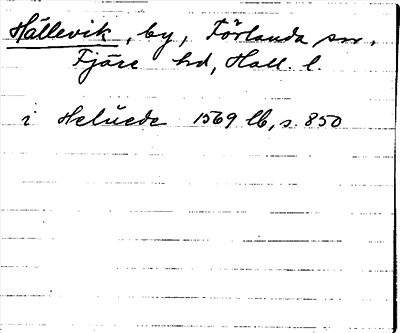 Hällevik, by, Förlanda sn,
Fjäre hd, Hall. l.
i Heluede 1569 lb, s. 850